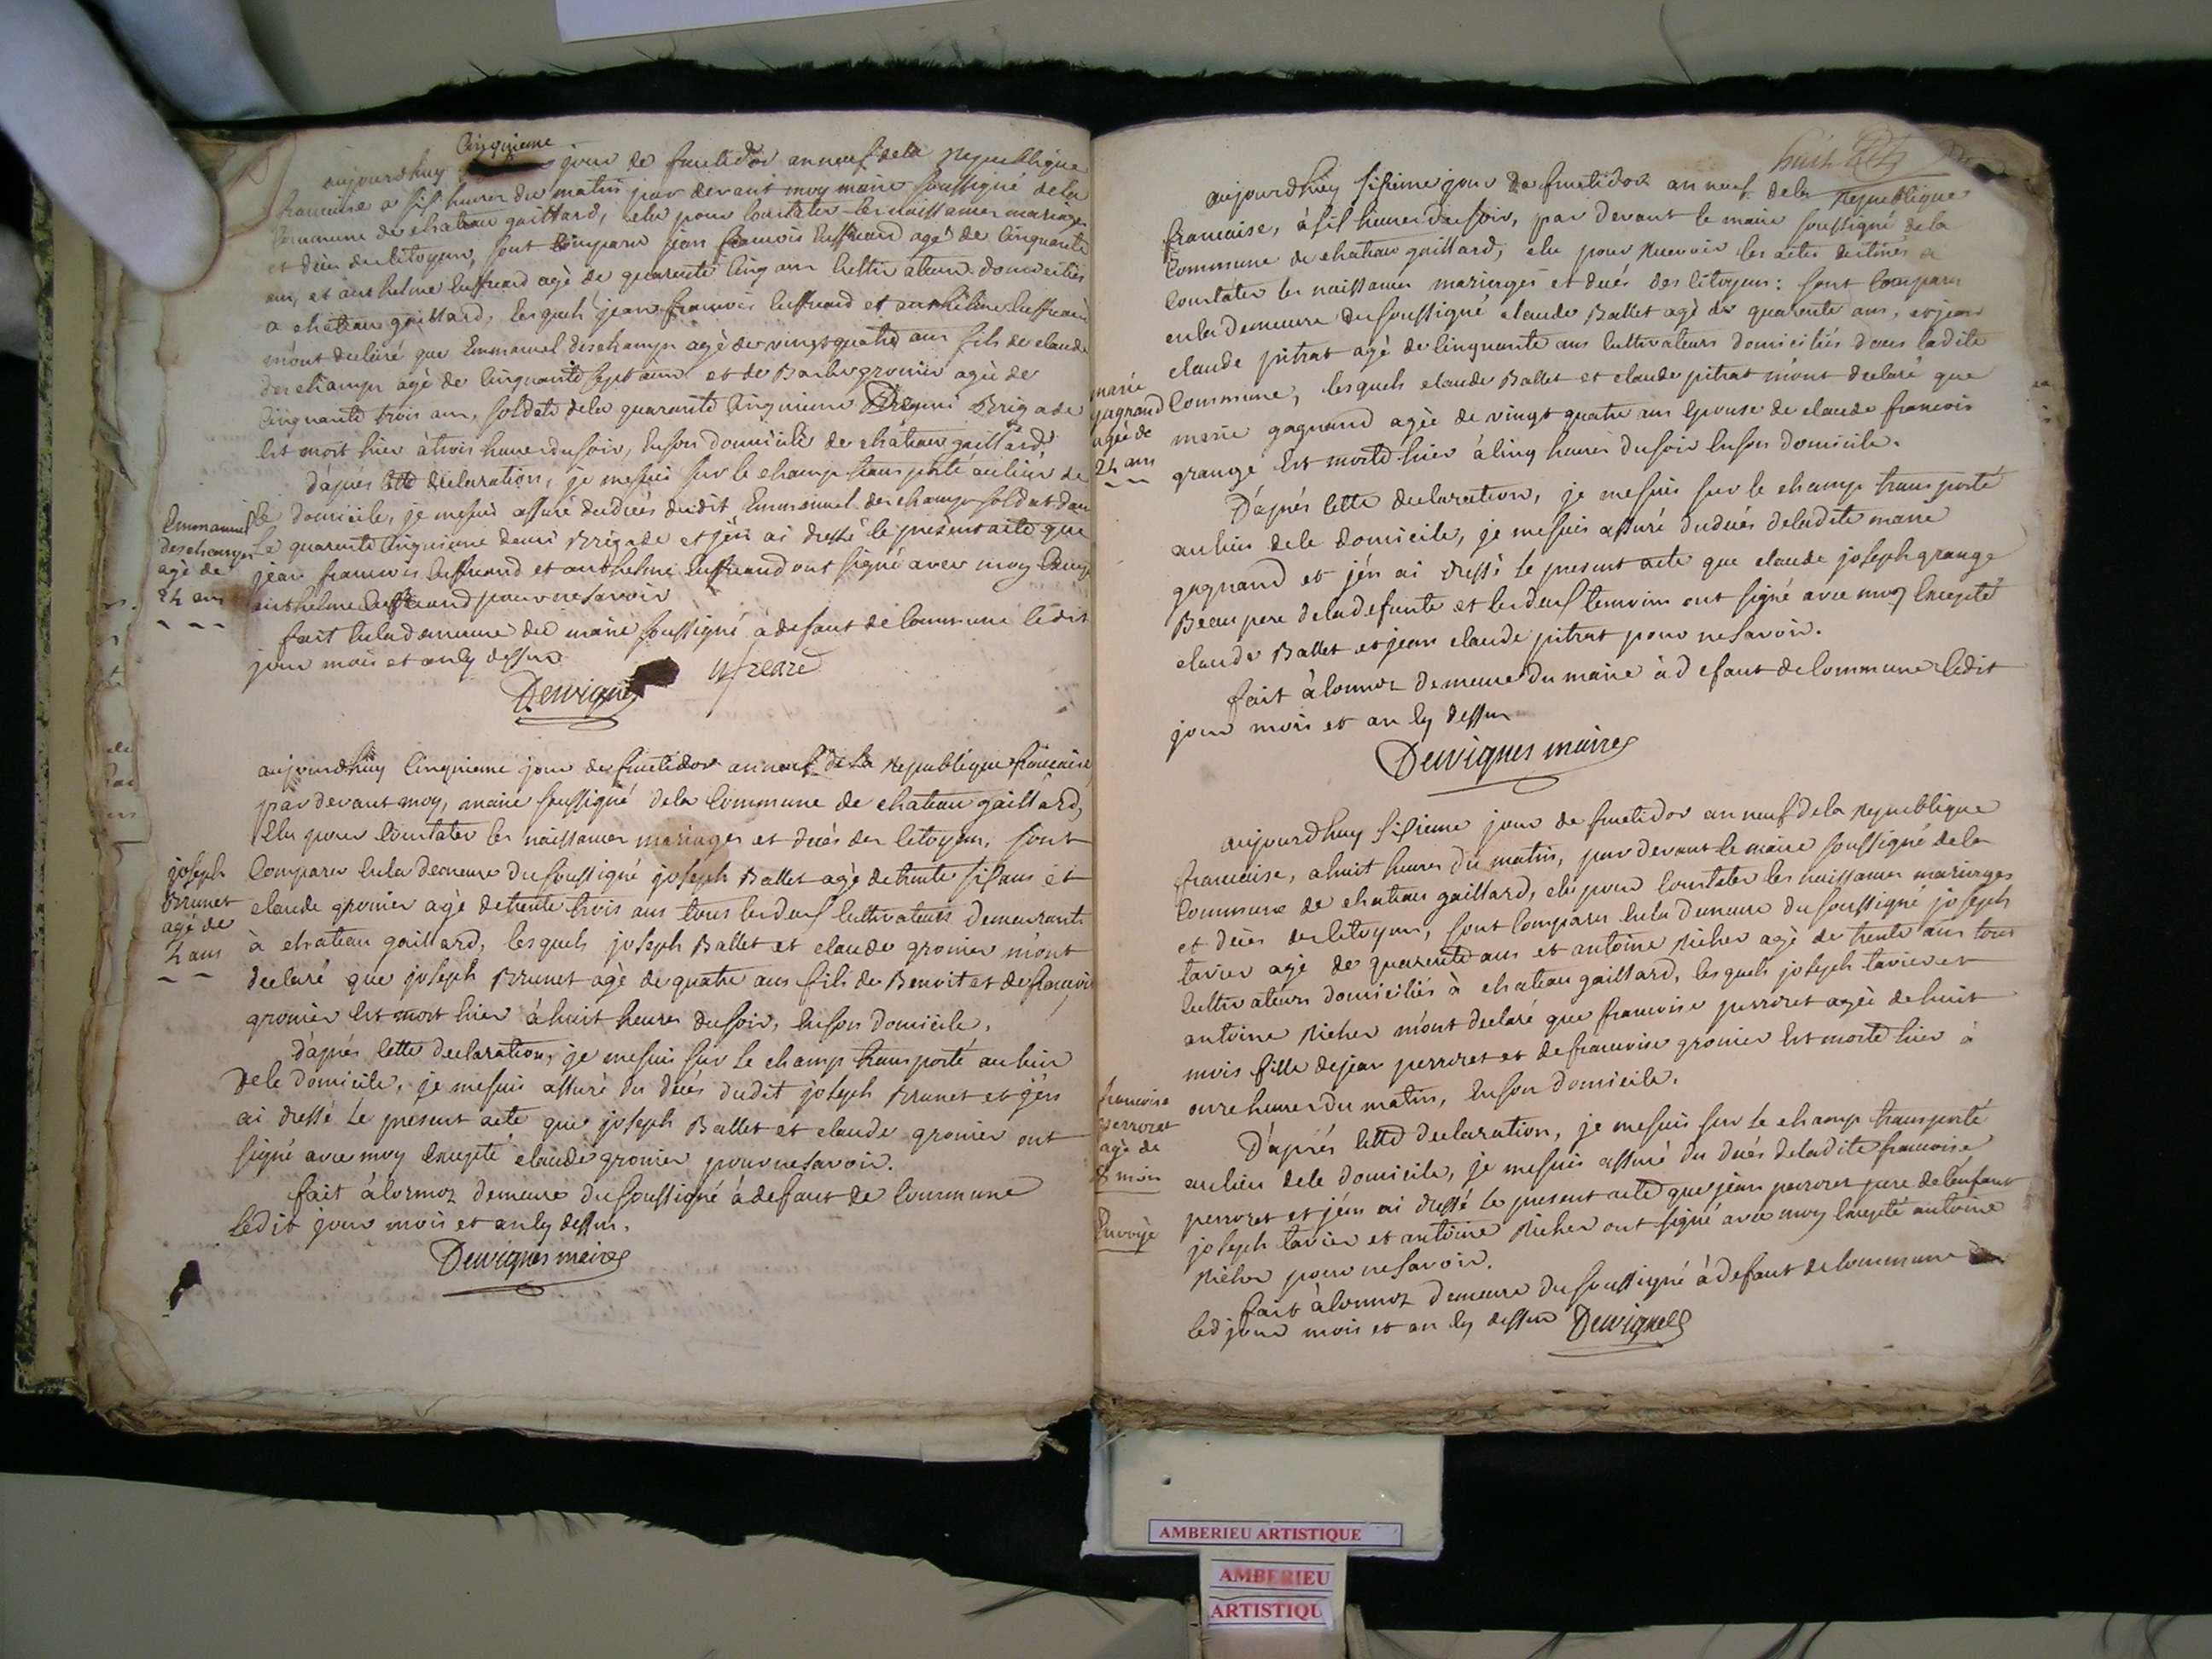 Cinquieme
aujourdhuy jour de fructidor an neuf de la Republique
francaise a six heures du matin par devant moy maire soussigné dela
Commune de chateau gaillard, elu pour Constater les naissances mariages
et deces des Citoyens, sont Comparu jean francois age de Cinquante
ans, et anthelme agé de quarente Cinq ans Cultivateurs domiciliés
a chateau gaillard, lesquels jean francois et anthelme
mont declaré que Emmanuel deschamps agé de vingt quatre ans fils de claude
deschamps agé de Cinquante sept ans et de gronier agée de
Cinquante trois ans, soldat dela quarente Cinquieme Demi Brigade
Est mort hier à trois heures du soir, En son domicile de château gaillard
d'aprés Cette declaration, je me suis sur le champ transporté au lieu de
Ce domicile, je me suis assuré du deces dudit Emmanuel deschamps soldat dans
La quarente Cinquieme demi Brigade et j'en ai dressé le présent acte que
jean francois et anthelme ont signé avec moy
anthelme pour ne savoir
fait En la demeure du maire soussigné a defaut de Commune le dit
jour mois et an Cy dessus
Dervignes
Emmanuel
deschamps
agé de
24 ans
aujourdhuy Cinquieme jour de fructidor an neuf de la Republique francaise
par devant moy, maire soussigné dela Commune de chateau gaillard,
Elu pour Constater les naissances mariages et deces des Citoyens, sont
Comparu En la demeure du soussigné joseph Ballet agé de trente six ans et
claude gronier agé de trente trois ans tous les deux Cultivateurs demeurants
à chateau gaillard, lesquels joseph Ballet et claude gronier m'ont
declaré que joseph Brunet agé de quatre ans fils de Benoit et de francoise
gronier Est mort hier à huit heures du soir, En son domicile.
d'aprés Cette declaration, je me suis sur le champ transporté au lieu
de Ce domicile, je me suis assuré du deces dudit joseph Brunet et j'en
ai dressé Le present acte que joseph Ballet et claude gronier ont
signé avec moy Excepté claude gronier pour ne savoir.
fait à Cormoz demeure du soussigné à defaut de Commune
Ledit jour mois et an Cy dessus.
Dervignes maire
joseph
Brunet
agé de
4 ans
huit
aujourdhuy sixieme jour de fructidor an neuf dela Republique
francaise, à six heures du soir, par devant le maire soussigné de la
Commune de chateau gaillard, elu pour Recevoir les actes destinés a
Constater les naissances mariages et decés des Citoyens: sont Comparu
en la demeure du soussigné claude Ballet agé de quarente ans, et jean
claude pitrat agé de Cinquante ans Cultivateurs domiciliés dans ladite
Commune, lesquels claude Ballet et claude pitrat m'ont declaré que
marie gagnand agée de vingt quatre ans Epouse de claude francois
grange Est morte hier à Cinq heures du soir En son domicile.
D'aprés Cette declaration, je me suis sur le champ transporté
au lieu de Ce domicile, je me suis assuré du deces de ladite marie
gagnand et j'en ai dressé le present acte que claude joseph grange
Beau pere dela defunte et les deux temoins ont signé avec moy Excepté
claude Ballet et jean claude pitrat pour ne savoir.
fait à Cormoz Demeure du maire à defaut de Commune Ledit
jour mois et an Cy dessus
Dervignes maire
marie
gagnand
agée de
24 ans
aujourdhuy sixieme jour de fructidor an neuf dela Republique
francaise, a huit heures du matin, par devant le maire soussigné dela
Commune de chateau gaillard, elu pour Constater les naissances mariages
et deces des Citoyens, sont Comparu En la demeure du soussigné joseph
tavier agé de quarente ans et antoine Richer agé de trente ans tous
Cultivateurs domiciliés à chateau gaillard, lesquels joseph tavier et
antoine Richer m'ont declaré que francoise perroret agée de huit
mois fille de jean perroret et de francoise gronier Est morte hier à
onze heures du matin, En son domicile.
D'aprés Cette declaration, je me suis sur Le champ transporté
au lieu de Ce domicile, je me suis assuré du decés de ladite francoise
perroret et j'en ai dressé Le present acte que jean perroret pere de l'enfant
joseph tavier et antoine Richer ont signé avec moy Excepté antoine
Richer pour ne savoir.
fait à Cormoz demeure du soussigné à defaut de Commune
led jour mois et an Cy dessus Dervignes
francoise
perroret
agé de
8 mois
Envoyé
AMBERIEU ARTISTIQUE
AMBERIEU
ARTISTIQU